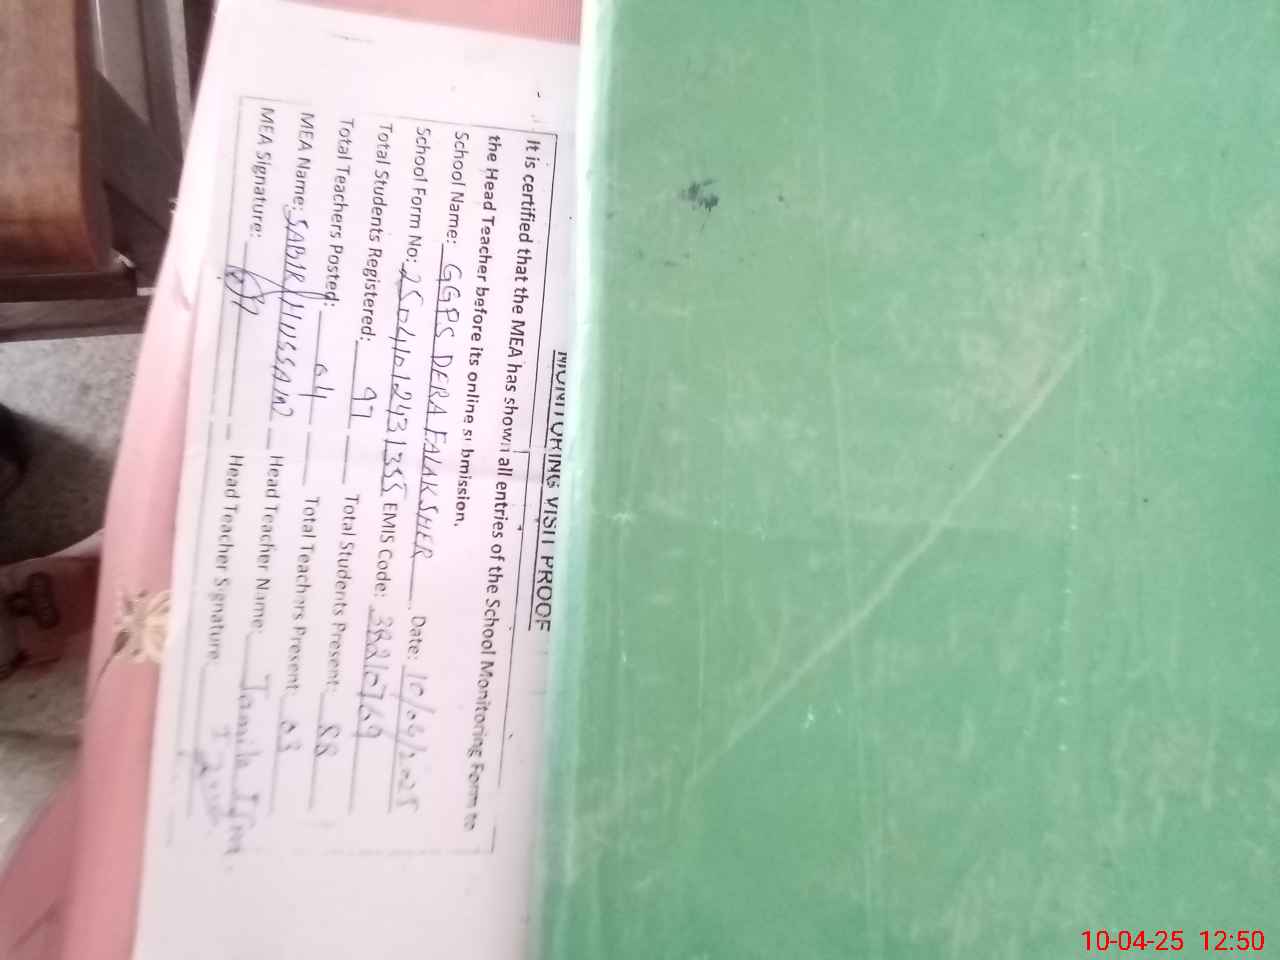 MONITORING VISIT PROOF
It is certified that the MEA has shown all entries of the School Monitoring Form to
the Head Teacher before its online submission.
School Name: GGPS DERA FALAKSHER Date: 10/04/2025
School Form No: EMIS Code: 38210769
Total Students Registered: 97 Total Students Present: 88
Total Teachers Posted: 04 Total Teachers Present: 03
MEA Name: SABIR HUSSAIN Head Teacher Name: Jamila
MEA Signature: Head Teacher Signature:
10-04-25 12:50